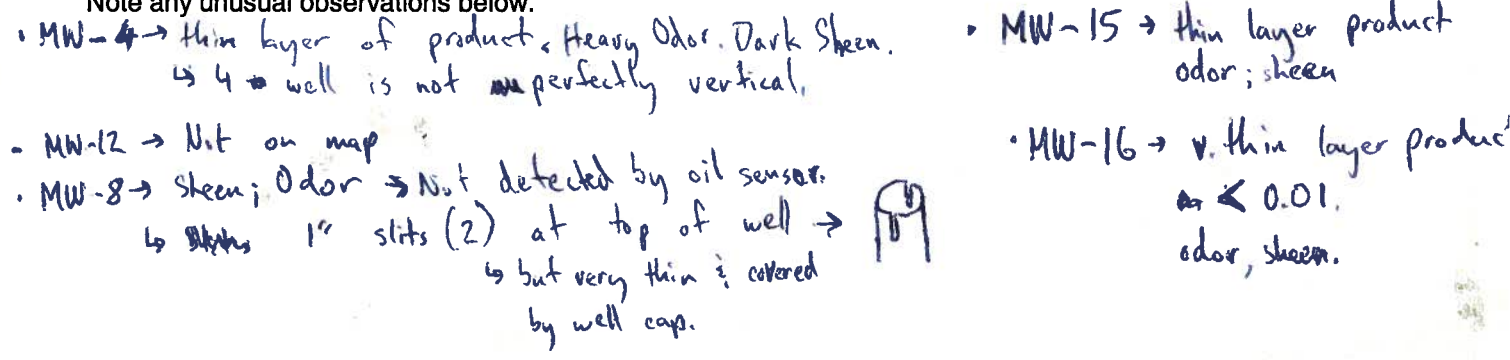 Note any unusual observations below.
• MW-4 → thin layer of product. Heavy Odor. Dark Sheen.
↳ 4 well is not perfectly vertical.
- MW-12 → Not on map
• MW-8 → Sheen; Odor → Not detected by oil sensor.
↳ 1" slits (2) at top of well →
↳ but very thin & covered
by well cap.
• MW-15 → thin layer product
odor; sheen
• MW-16 → v. thin layer product
< 0.01.
odor, sheen.